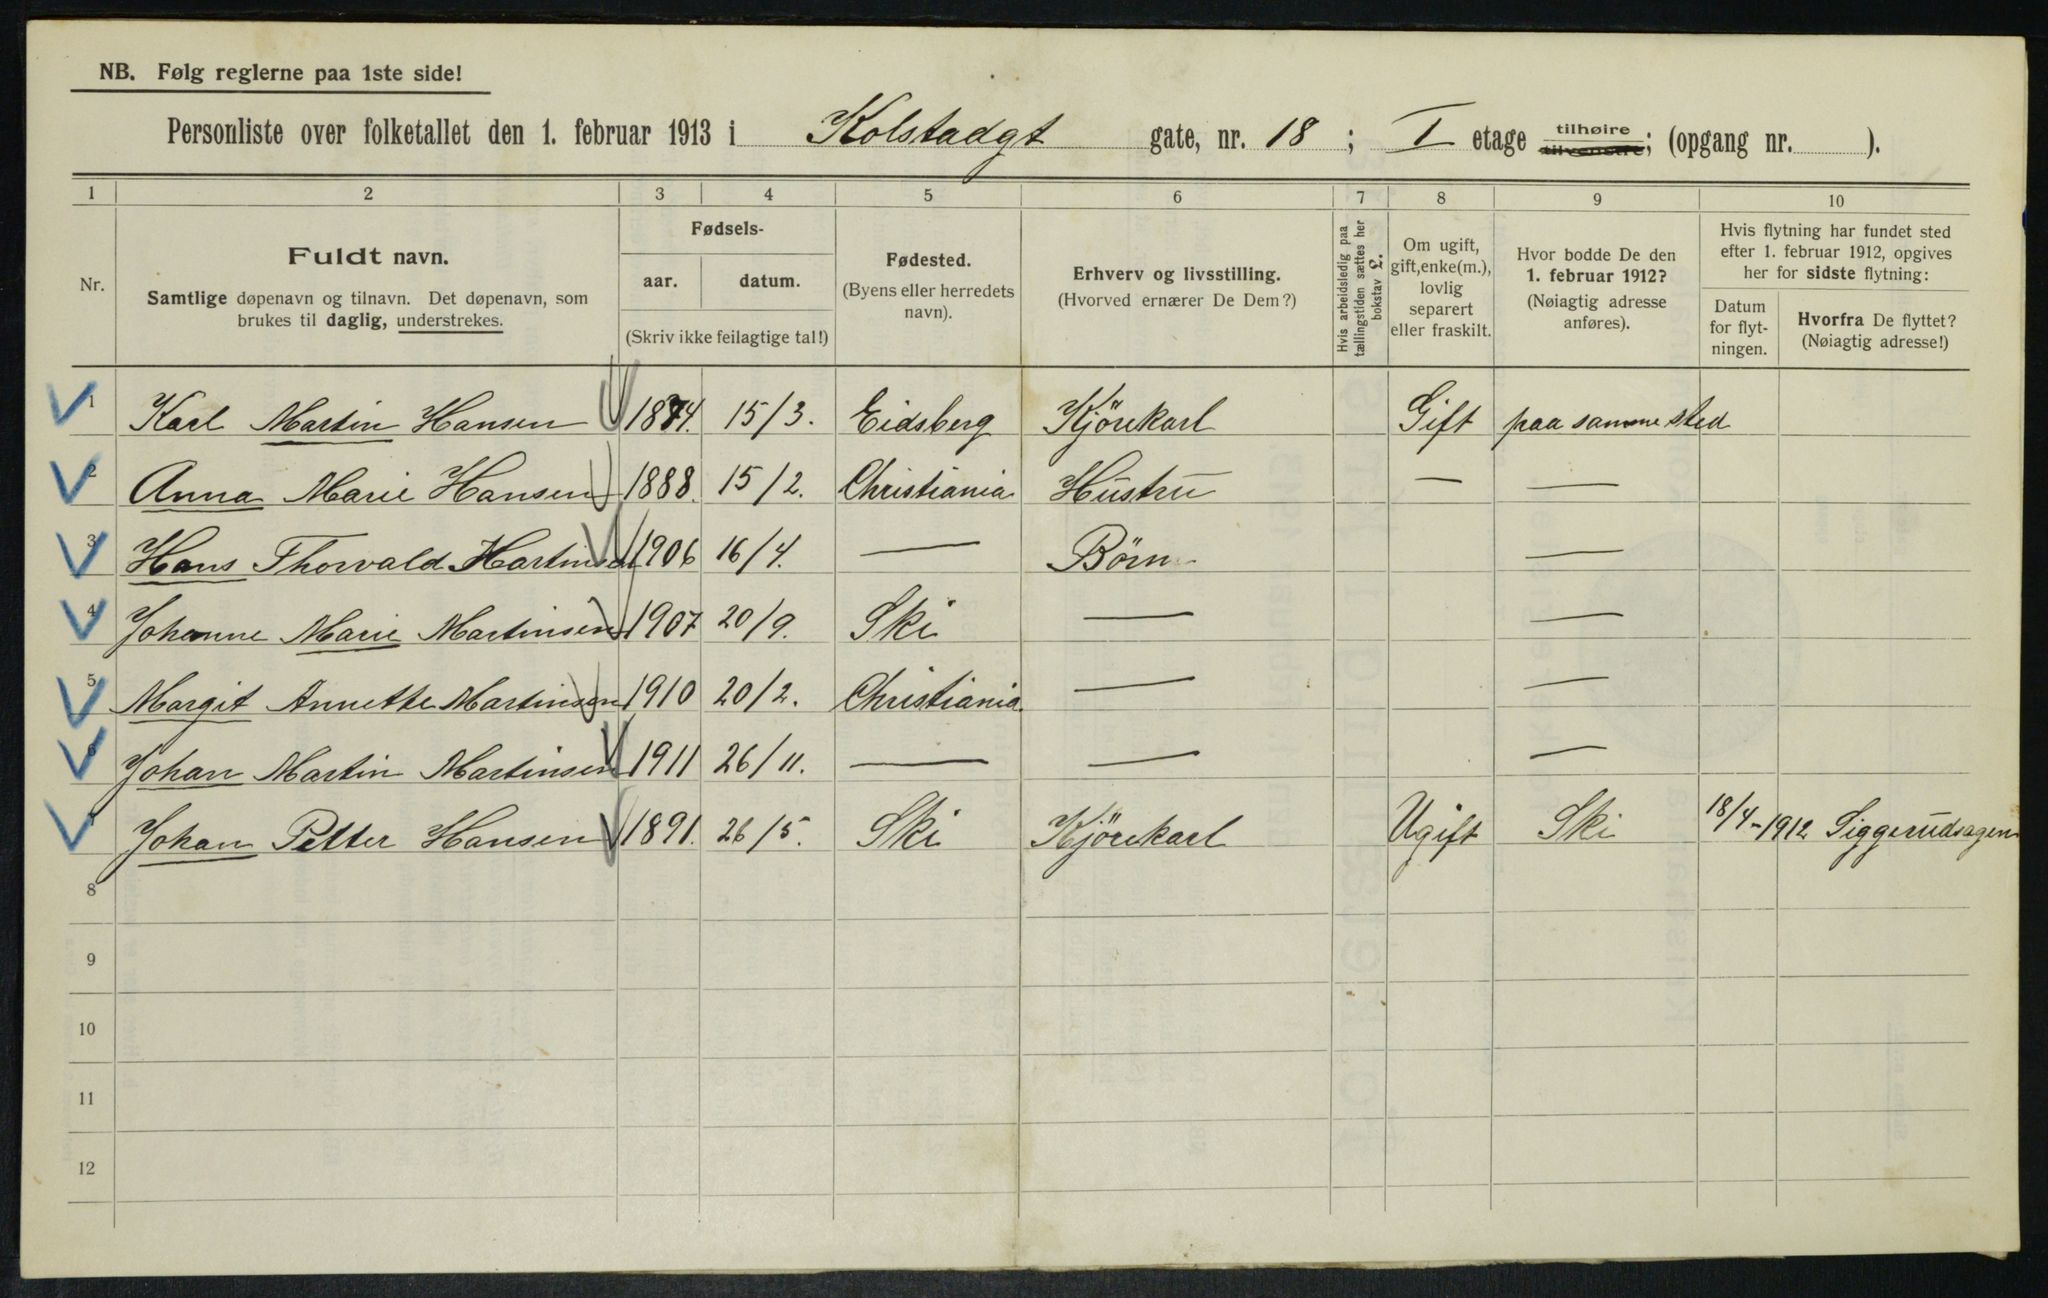 NB. Følg reglerne paa 1ste side!
Personliste over folketallet den 1. februar 1913 i Kolstadgt gate, nr. 18 ; I etage tilhøire tilvenstre; (opgang nr. ).
1 2 3 4 5 6 7 8 9 10
Nr.
Fuldt navn.
Samtlige døpenavn og tilnavn. Det døpenavn, som
brukes til daglig, understrekes.
Fødsels-
aar. datum.
(Skriv ikke feilagtige tal!)
Fødested.
(Byens eller herredets
navn).
Erhverv og livsstilling.
(Hvorved ernærer De Dem?)
Hvis arbeidsledig paa
tællingstiden sættes her
bokstav L.
Om ugift,
gift, enke(m.),
lovlig
separert
eller fraskilt.
Hvor bodde De den
1. februar 1912?
(Nøiagtig adresse
anføres).
Hvis flytning har fundet sted
efter 1. februar 1912, opgives
her for sidste flytning:
Datum
for flyt-
ningen.
Hvorfra De flyttet?
(Nøiagtig adresse!)
1 Karl Martin Hansen 1874. 15/3. Eidsberg Kjörekarl Gift paa samme sted
2 Anna Marie Hansen 1888. 15/2. Christiania Hustru — —
3 Hans Thorvald Martinsen 1906 16/4. — Börn —
4 Johanne Marie Martinsen 1907 20/9. Ski — —
5 Margit Annette Martinsen 1910 20/2. Christiania — —
6 Johan Martin Martinsen 1911 26/11. — — —
7 Johan Petter Hansen 1891. 26/5. Ski Kjörekarl Ugift Ski 18/4-1912 Siggerudsagen
8
9
10
11
12